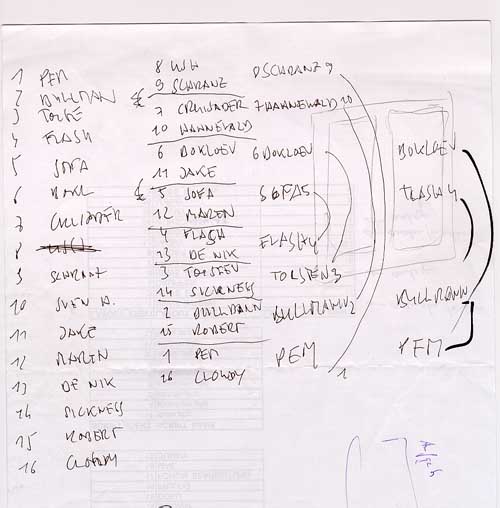 1 PEM
2 BULLMAN
3 TORGE
4 FLASH
5 SOFA
6
7
8
9 SCHRANZ
10 SVEN H.
11 JAKE
12 MARTIN
13 DE NIK
14 SICKNESS
15 ROBERT
16 CLOWDY
8
9 SCHRANZ
7 CRUISADER
10 HANNEWALD
6 BOKLOEV
11 JAKE
5 SOFA
12 MARTEN
4 FLASH
13 DE NIK
3 TORSTEN
14 SICKNESS
2 BULLMANN
15 ROBERT
1 PEM
16 CLOWDY
SCHRANZ 9
7 HANNEWALD 10
6 BOKLOEV
SOFA 5
FLASH 4
TORSTEN 3
BULLMANN 2
PEM
1
BOKLOEV
FLASH 4
BULLMANN
PEM